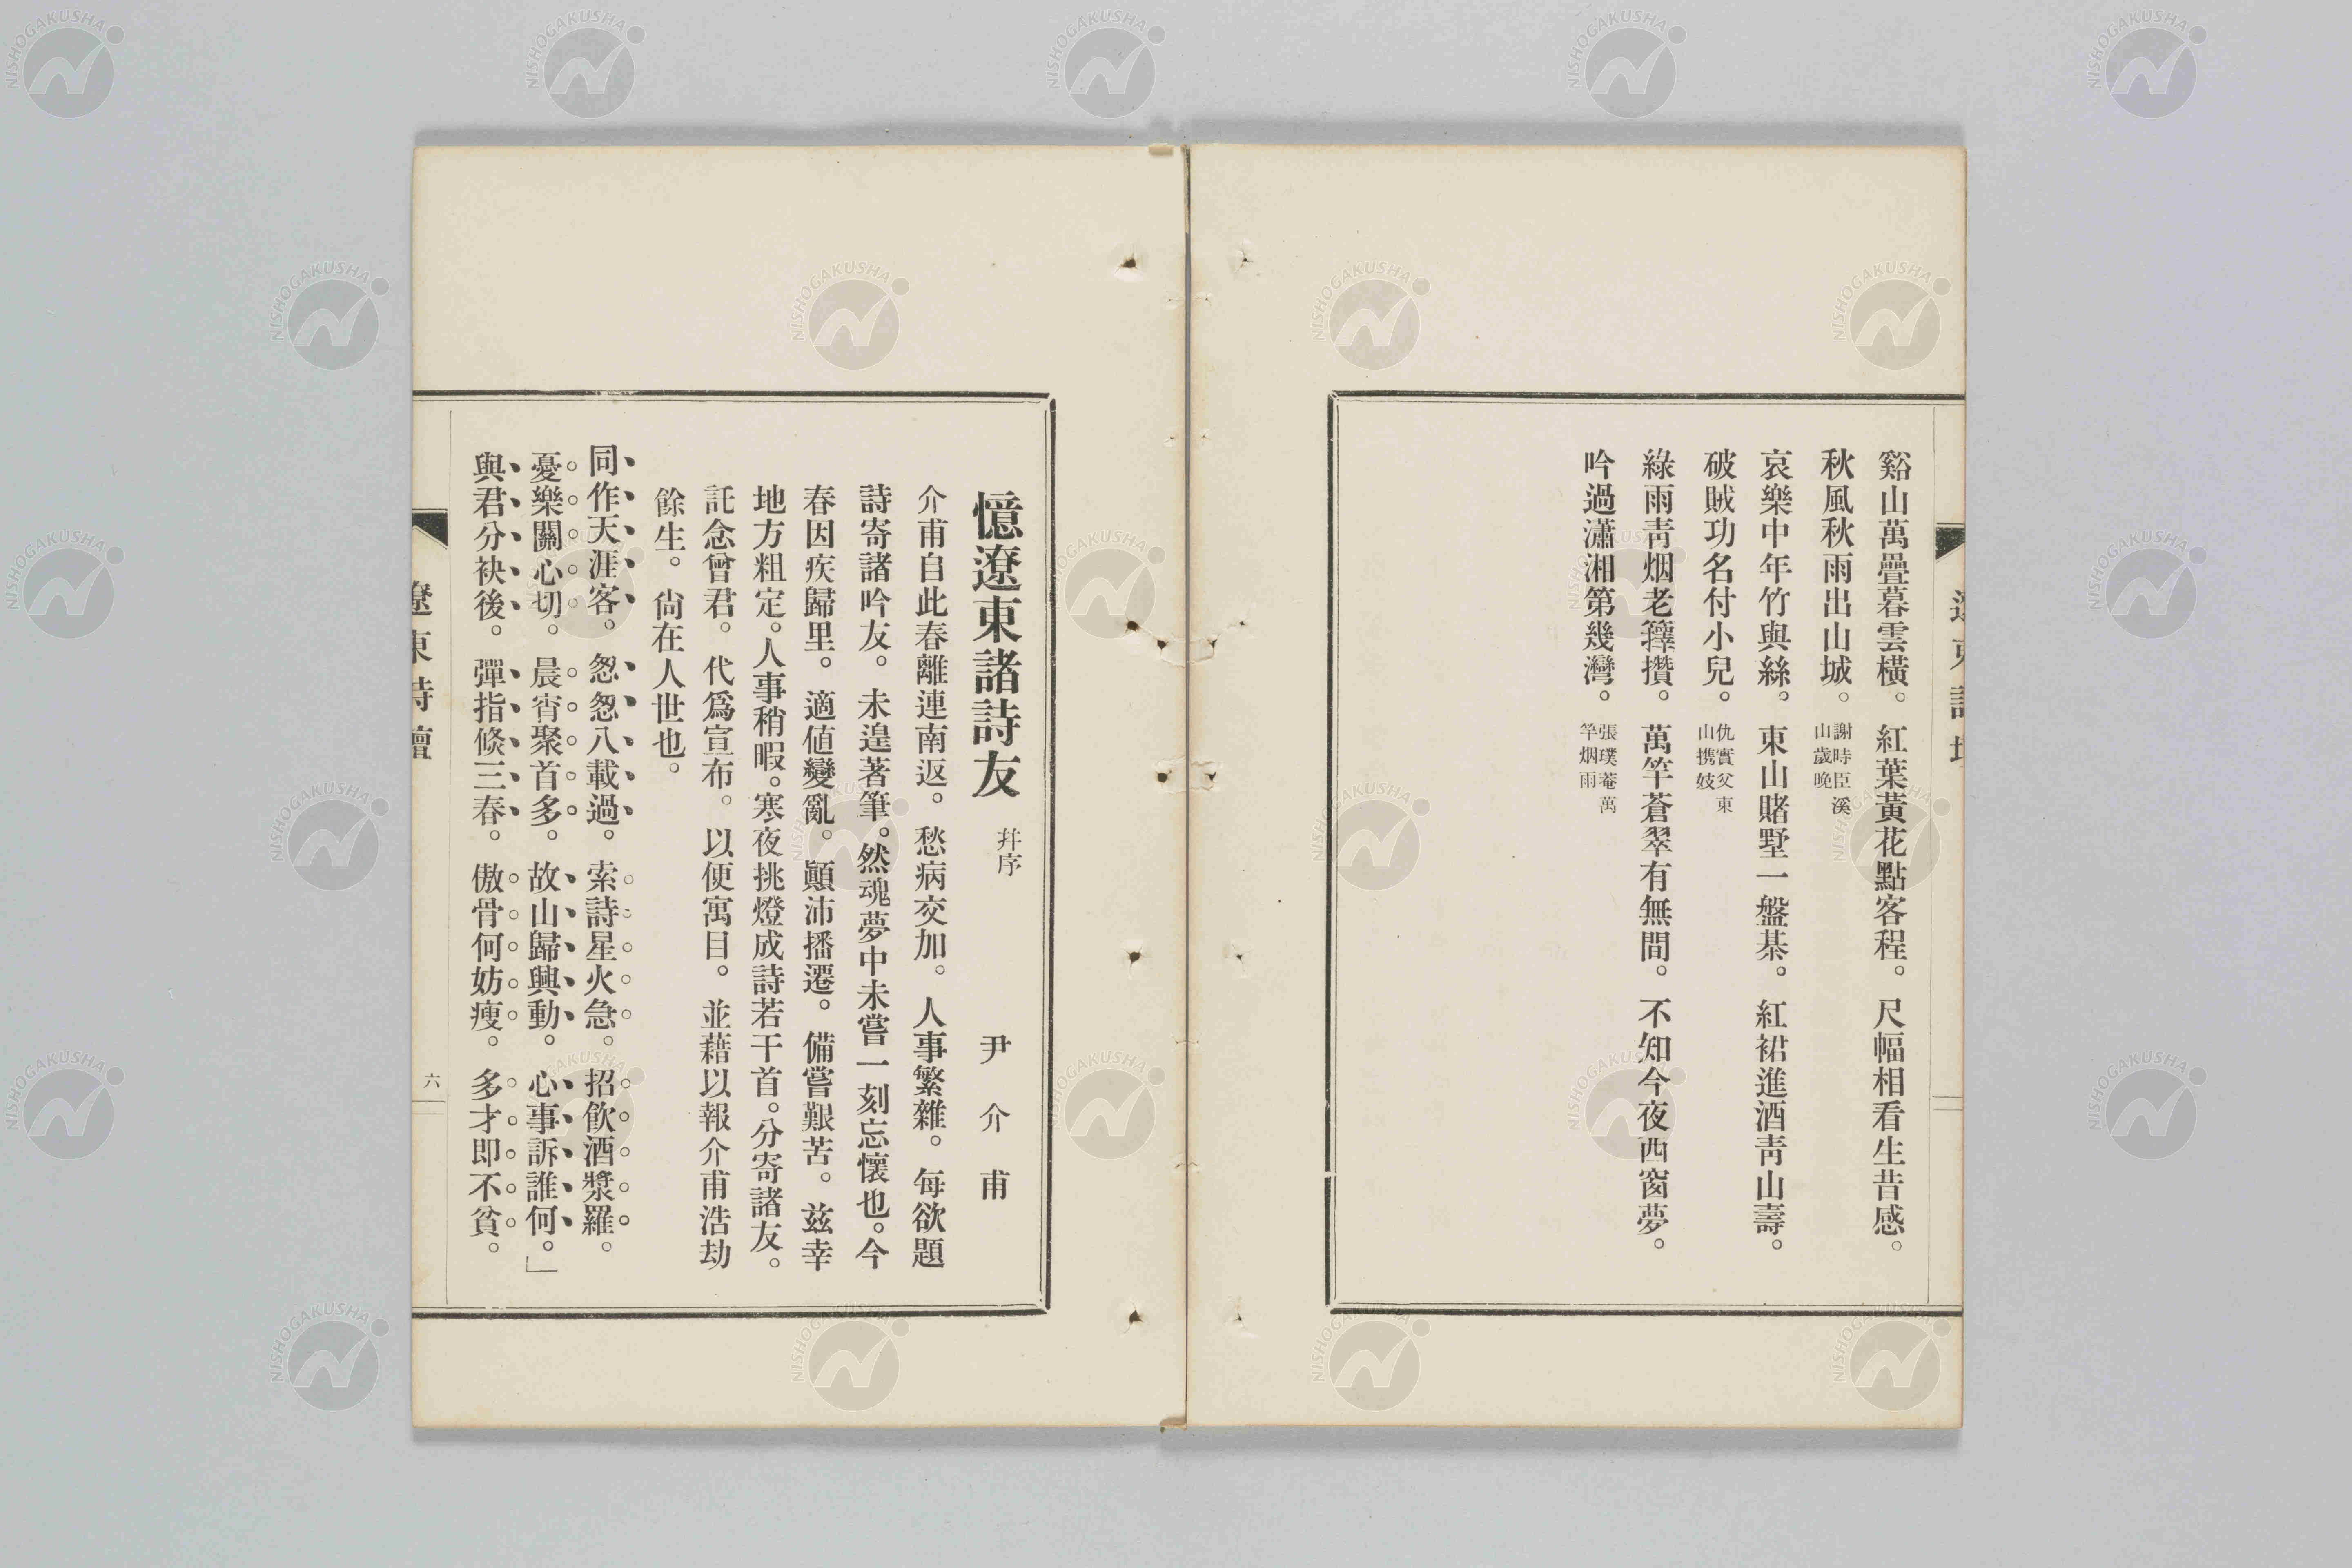 谿山萬疊暮雲橫。紅葉黃花點客程。尺幅相看生昔感。
秋風秋雨出山城。謝時臣溪山歲晚
哀樂中年竹與絲。東山賭墅一盤棊。紅裙進酒靑山壽。
破賊功名付小兒。仇實父東山携妓
綠雨靑烟老籜攢。萬竿蒼翠有無間。不知今夜西窗夢。
吟過瀟湘第幾灣。張璞菴萬竿烟雨
憶遼東諸詩友 幷序 尹介甫
介甫自此春離連南返。愁病交加。人事繁雜。每欲題
詩寄諸吟友。未遑著筆。然魂夢中未嘗一刻忘懷也。今
春因疾歸里。適値變亂。顚沛播遷。備嘗艱苦。玆幸
地方粗定。人事稍暇。寒夜挑燈成詩若干首。分寄諸友。
託念曾君。代爲宣布。以便寓目。並藉以報介甫浩劫
餘生。尙在人世也。
同作天涯客。怱怱八載過。索詩星火急。招飮酒漿羅。
憂樂關心切。晨宵聚首多。故山歸興動。心事訴誰何。」
與君分袂後。彈指倐三春。傲骨何妨瘦。多才即不貧。
遼東詩壇
六
NISHOGAKUSHA